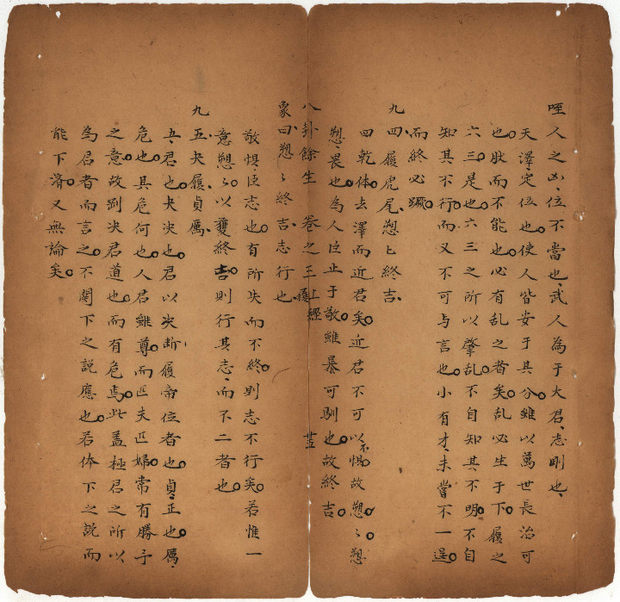 咥人之凶、位不當也、武人為于大君、志剛也、
天澤定位也使人皆安于其分雖以萬世長治可
也肰而不能也必有乱之者矣乱必生于下履之
六三是也六三之所以肇乱不自知其不明不自
知其不行而又不可与言也小有才未嘗不一逞
而終必
九四、履虎尾愬〻終吉、
四乾体去澤而近君矣近君不可以不惕故愬〻愬
愬、畏也為人臣止于敬雖暴可馴也故終吉
八卦餘生 卷之三 上經 履
象曰愬〻終吉志行也
敬惧臣志也有所失而不終則志不行矣若惟一
意愬〻以獲終吉則行其志而下二者也
九五夬履貞厲、
五、君也夬决也君以夬斷履帝位者也貞正也厲、
危也其危何也人君雖尊而匹夫匹婦常有勝予
之意故剛决君道也而有危焉此盖極君之所以
為君者而言之不関下之説應也若俟下之説而
能下濟又無論矣